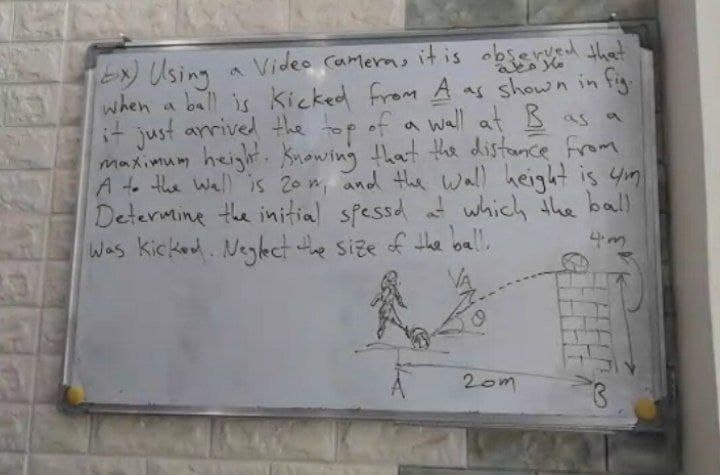 Ex) Using a Video Camera, it is observed that
when a ball is Kicked from A as shown in fig.
it just arrived the top of a wall at B as a
maximum height. Knowing that the distance from
A to the wall is 20 m, and the wall height is 4m
Determine the initial spessd at which the ball
was Kicked. Neglect the size of the ball.
4m
VA
θ
A
20m
B